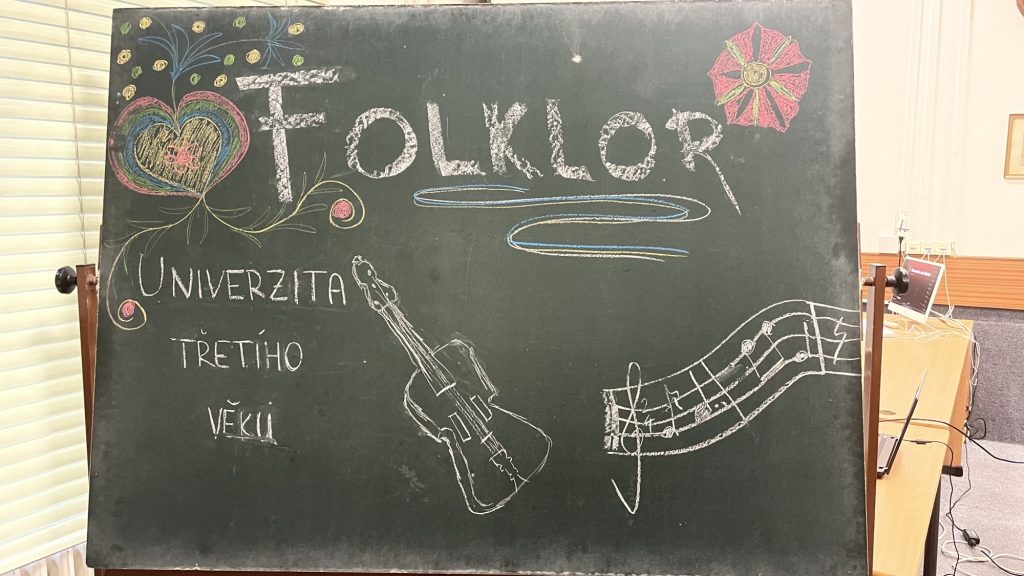 FOLKLOR
UNIVERZITA
TŘETÍHO
VĚKU